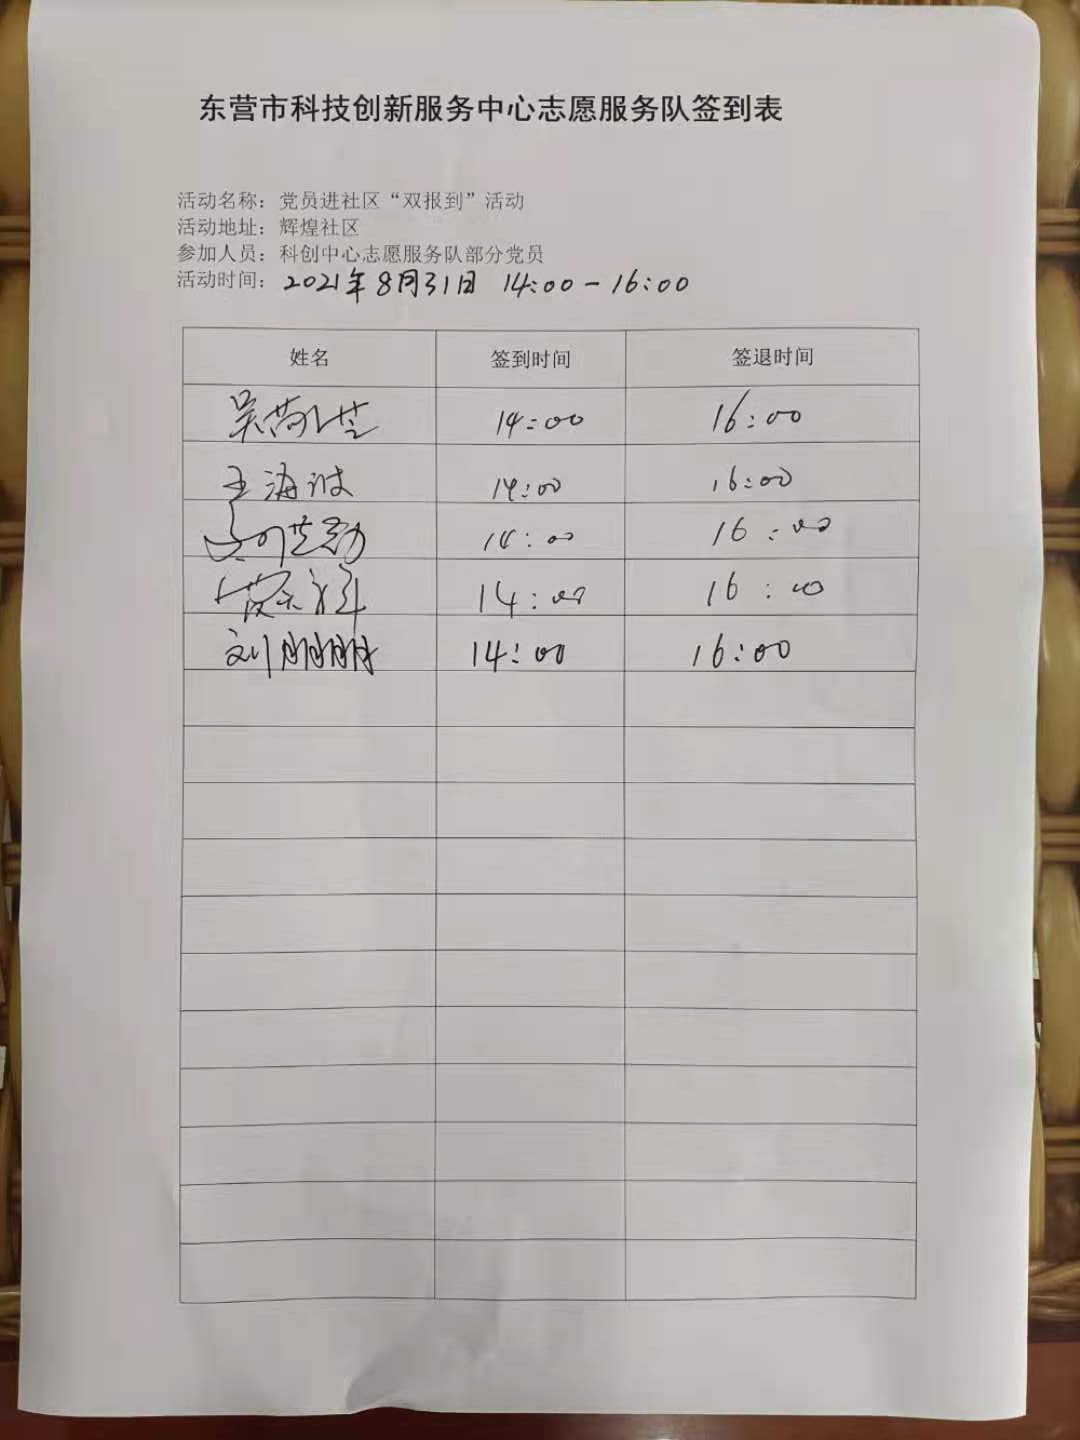 东营市科技创新服务中心志愿服务队签到表
活动名称：党员进社区“双报到”活动
活动地址：辉煌社区
参加人员：科创中心志愿服务队部分党员
活动时间：2021年8月31日 14:00-16:00
姓名 签到时间 签退时间
14:00 16:00
王海波 14:00 16:00
14:00 16:00
14:00 16:00
刘朋朋 14:00 16:00